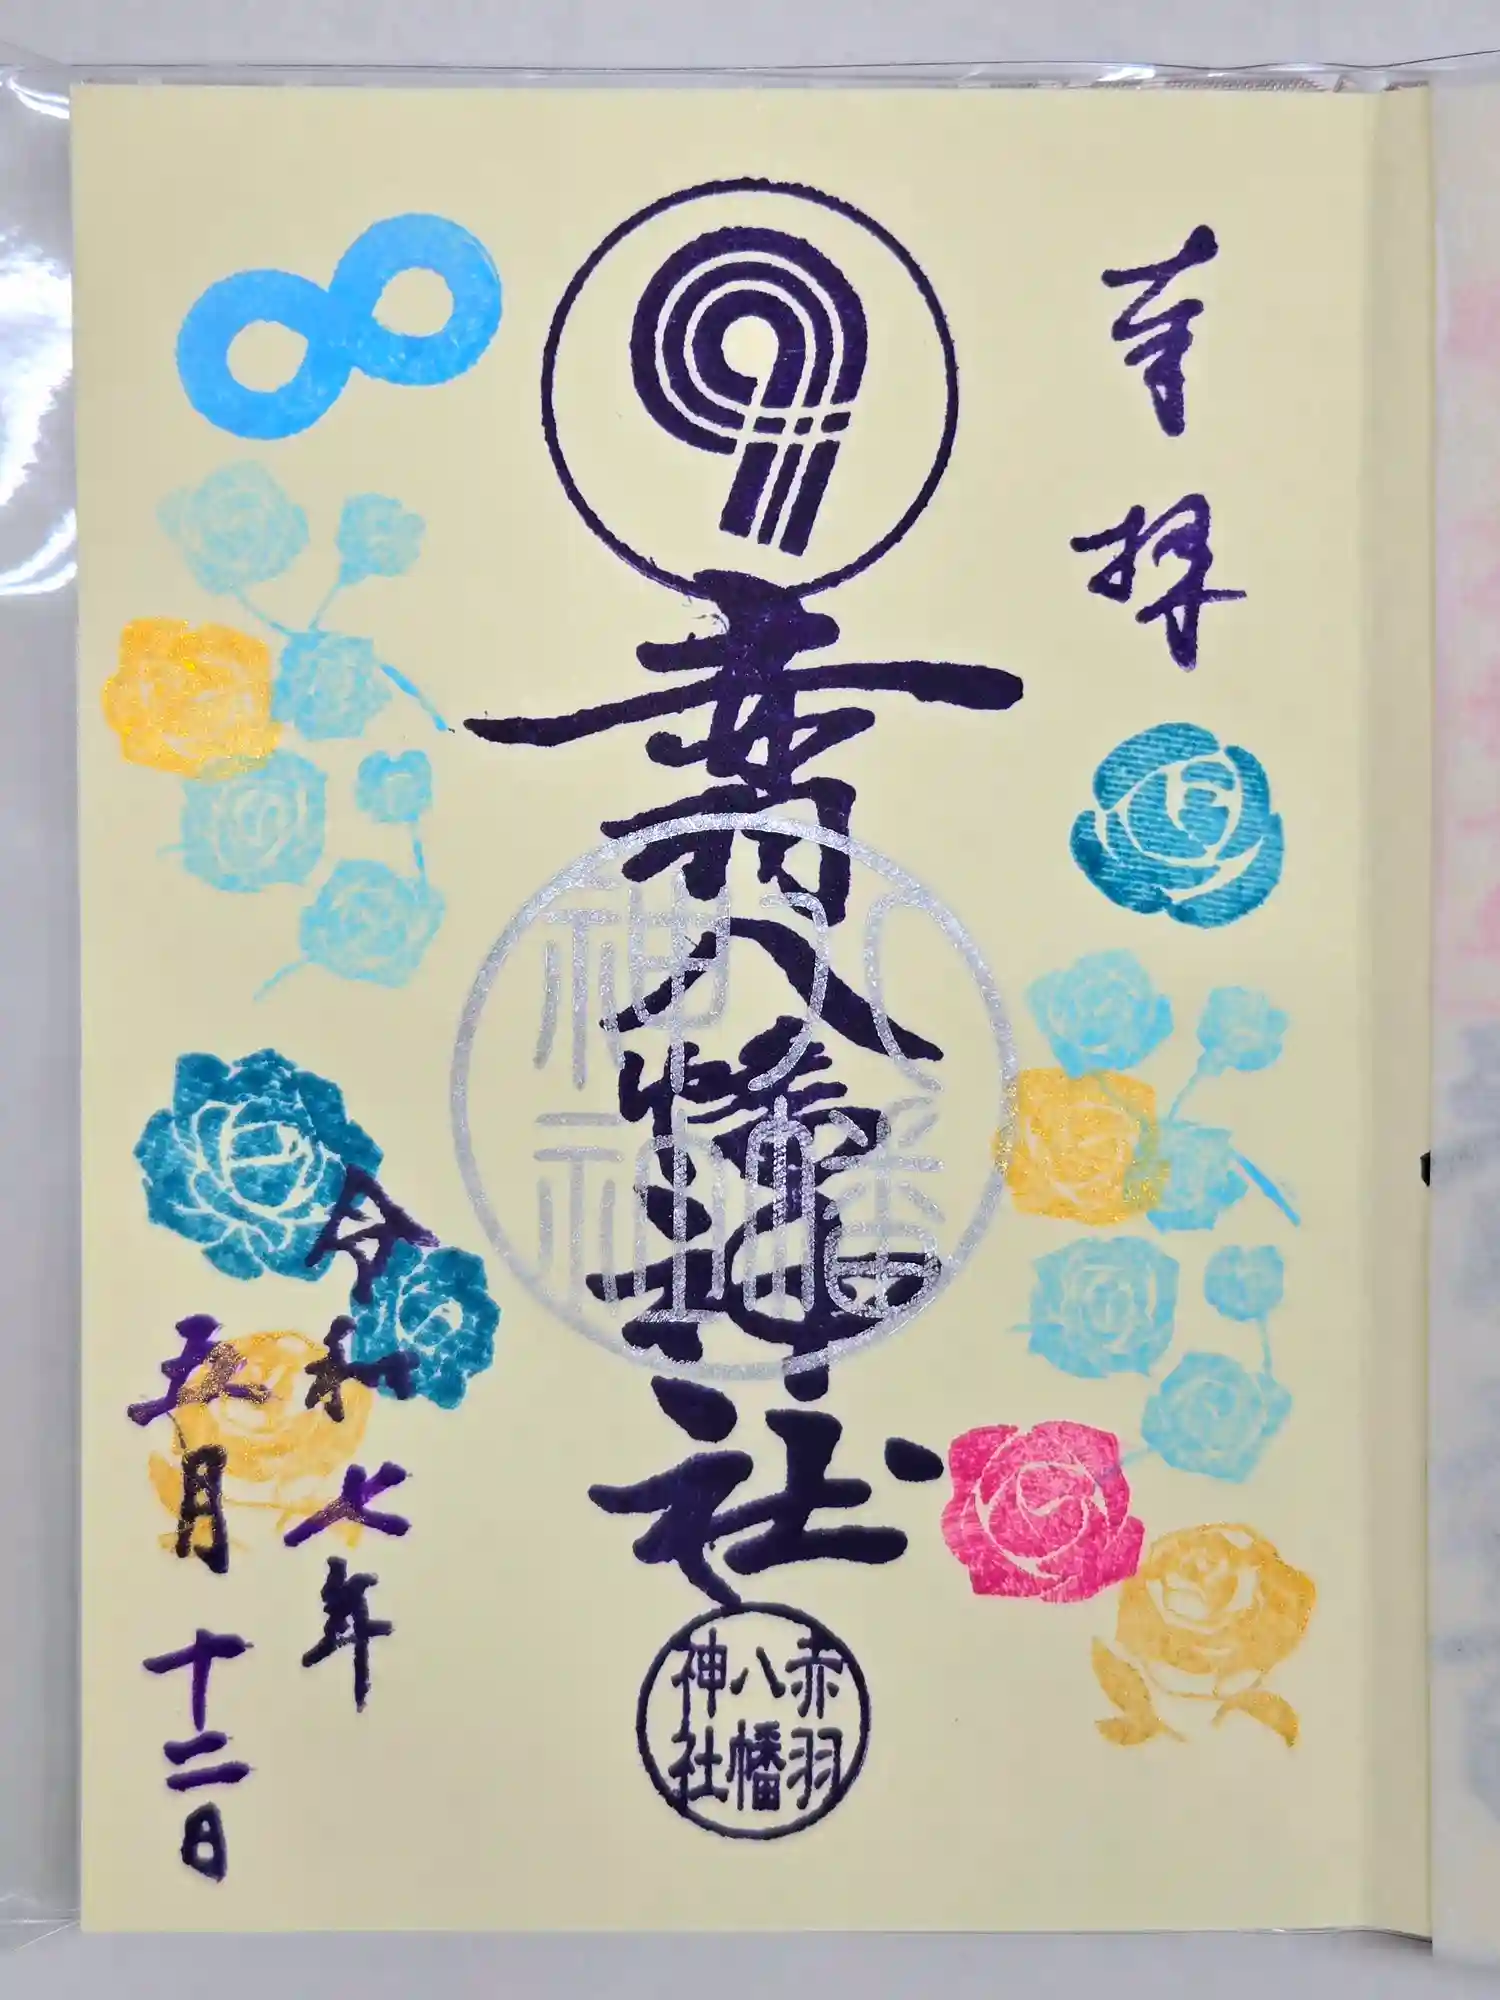 奉拝
9
赤羽八幡神社
八幡
神
赤羽
八幡
神社
令和七年
五月十二日